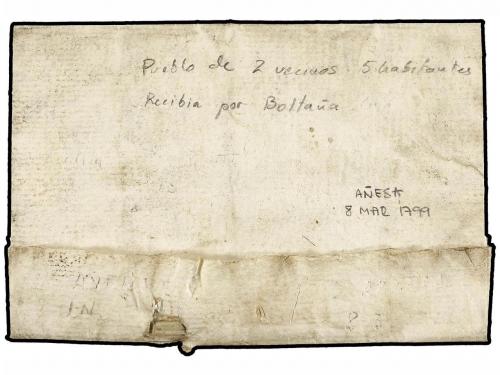 Pueblo de 2 vecinos. 5 habitantes
Recibia por Boltaña
AÑESA
8 MAR 1799